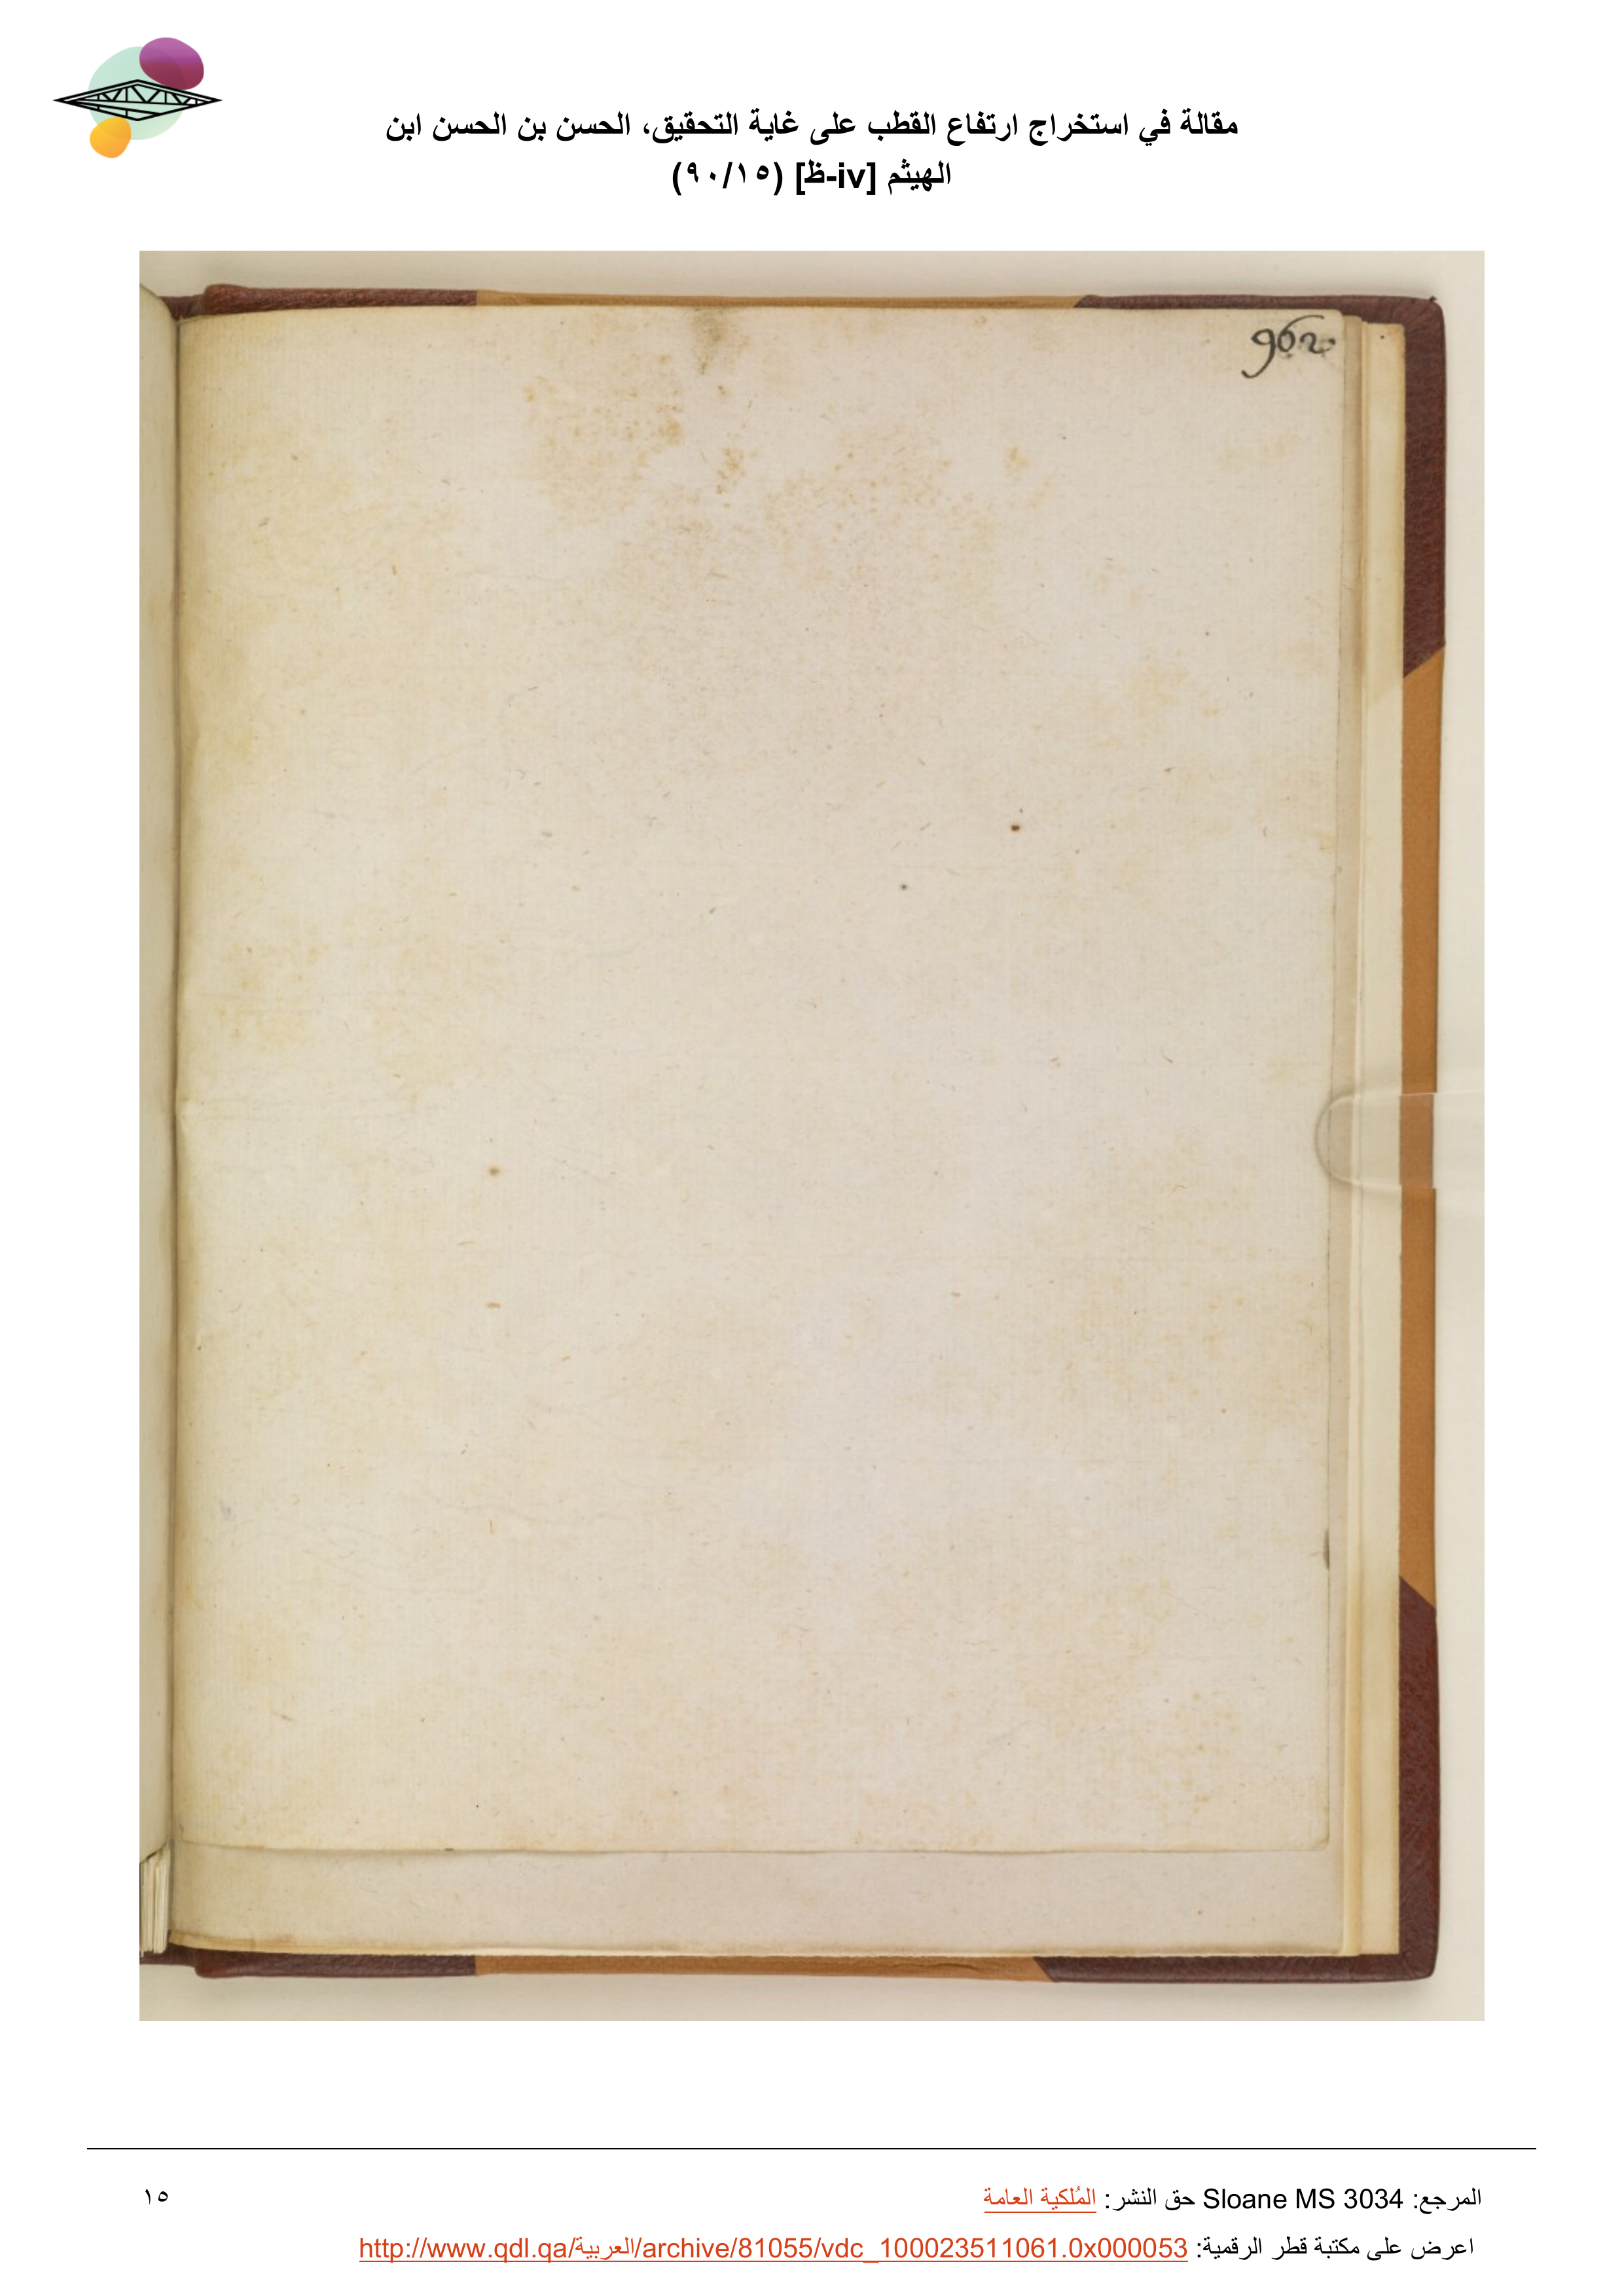 مقالة في استخراج ارتفاع القطب على غاية التحقيق، الحسن بن الحسن ابن
الهيثم [iv-ظ] (٩٠/١٥)
962
المرجع: Sloane MS 3034 حق النشر: المُلكية العامة
١٥
اعرض على مكتبة قطر الرقمية: http://www.qdl.qa/العربية/archive/81055/vdc_100023511061.0x000053